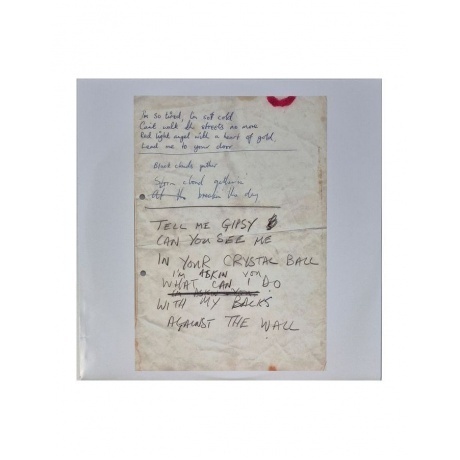 I'm so tired, I'm cot cold
Can't walk the streets no more
Red light angel with a heart of gold,
Lead me to your door
Black clouds gather
Storm cloud gatherin
At the break the day
TELL ME GIPSY
CAN YOU SEE ME
IN YOUR CRYSTAL BALL
I'M ASKIN YOU
WHAT CAN I DO
I'M ASKIN YOU
WITH MY BACKS
AGAINST THE WALL